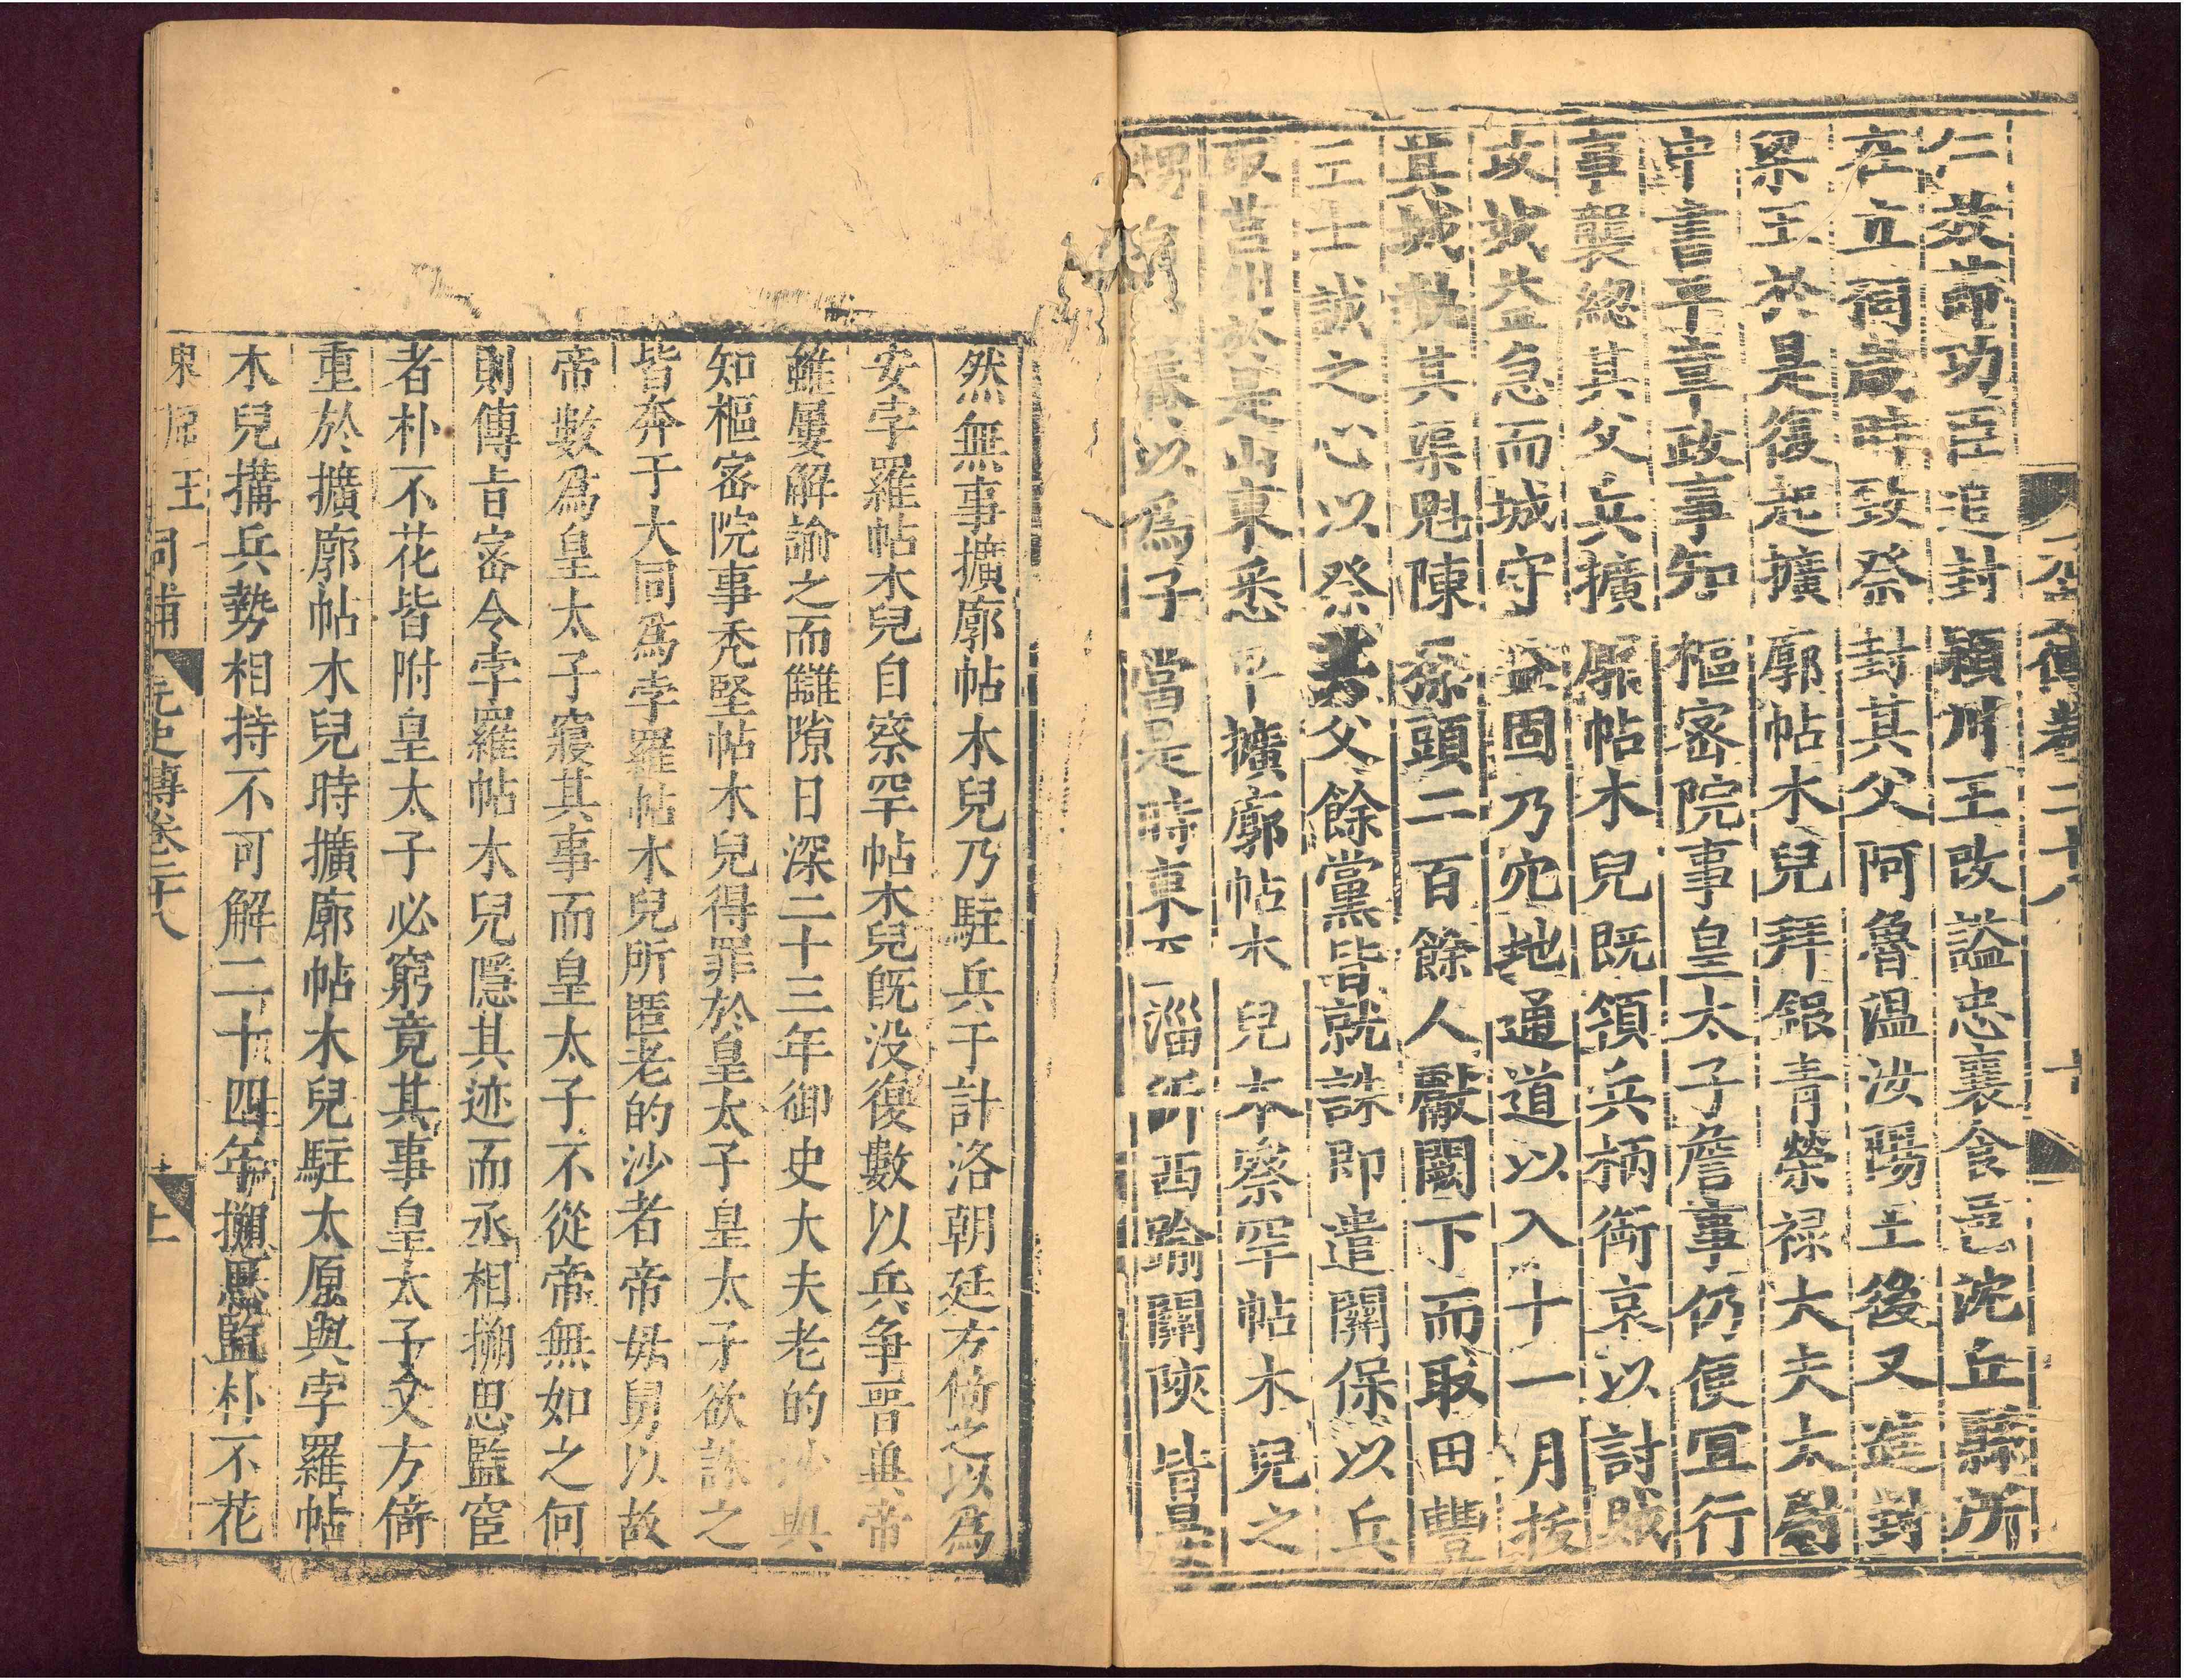 元史傳卷二十八 十
仁茂節功臣追封潁川王改謚忠襄食邑沈丘縣所
在立祠歲時致祭封其父阿魯溫汝陽王後又進封
梁王於是復起擴廓帖木兒拜銀青榮祿大夫太尉
中書平章政事知樞密院事皇太子詹事仍便宜行
事襲總其父兵擴廓帖木兒既領兵柄銜哀以討賊
攻城益急而城守益固乃穴地通道以入十一月拔
其城執其渠魁陳猱頭二百餘人獻闕下而取田豐
王士誠之心以祭其父餘黨皆就誅即遣關保以兵
取莒州於是山東悉平擴廓帖木兒本察罕帖木兒之
甥 養以為子當是時東 淄沂西踰關陝皆
然無事擴廓帖木兒乃駐兵于計洛朝廷方倚之以為
安孛羅帖木兒自察罕帖木兒既没復數以兵争晉冀帝
雖屢解諭之而讎隙日深二十三年御史大夫老的沙與
知樞密院事禿堅帖木兒得罪於皇太子皇太子欲誅之
皆奔于大同為孛羅帖木兒所匿老的沙者帝母舅以故
帝數為皇太子寢其事而皇太子不從帝無如之何
則傳旨密令孛羅帖木兒隱其迹而丞相搠思監宦
者朴不花皆附皇太子必窮竟其事皇太子又方倚
重於擴廓帖木兒時擴廓帖木兒駐太原與孛羅帖
木兒搆兵勢相持不可解二十四年搠思監朴不花
泉 王
元史傳卷二十八 十一